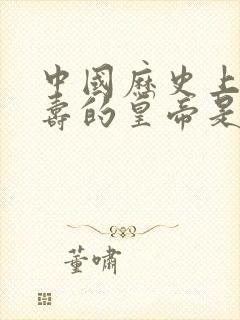 中國歷史上
壽的皇帝是
董嘯